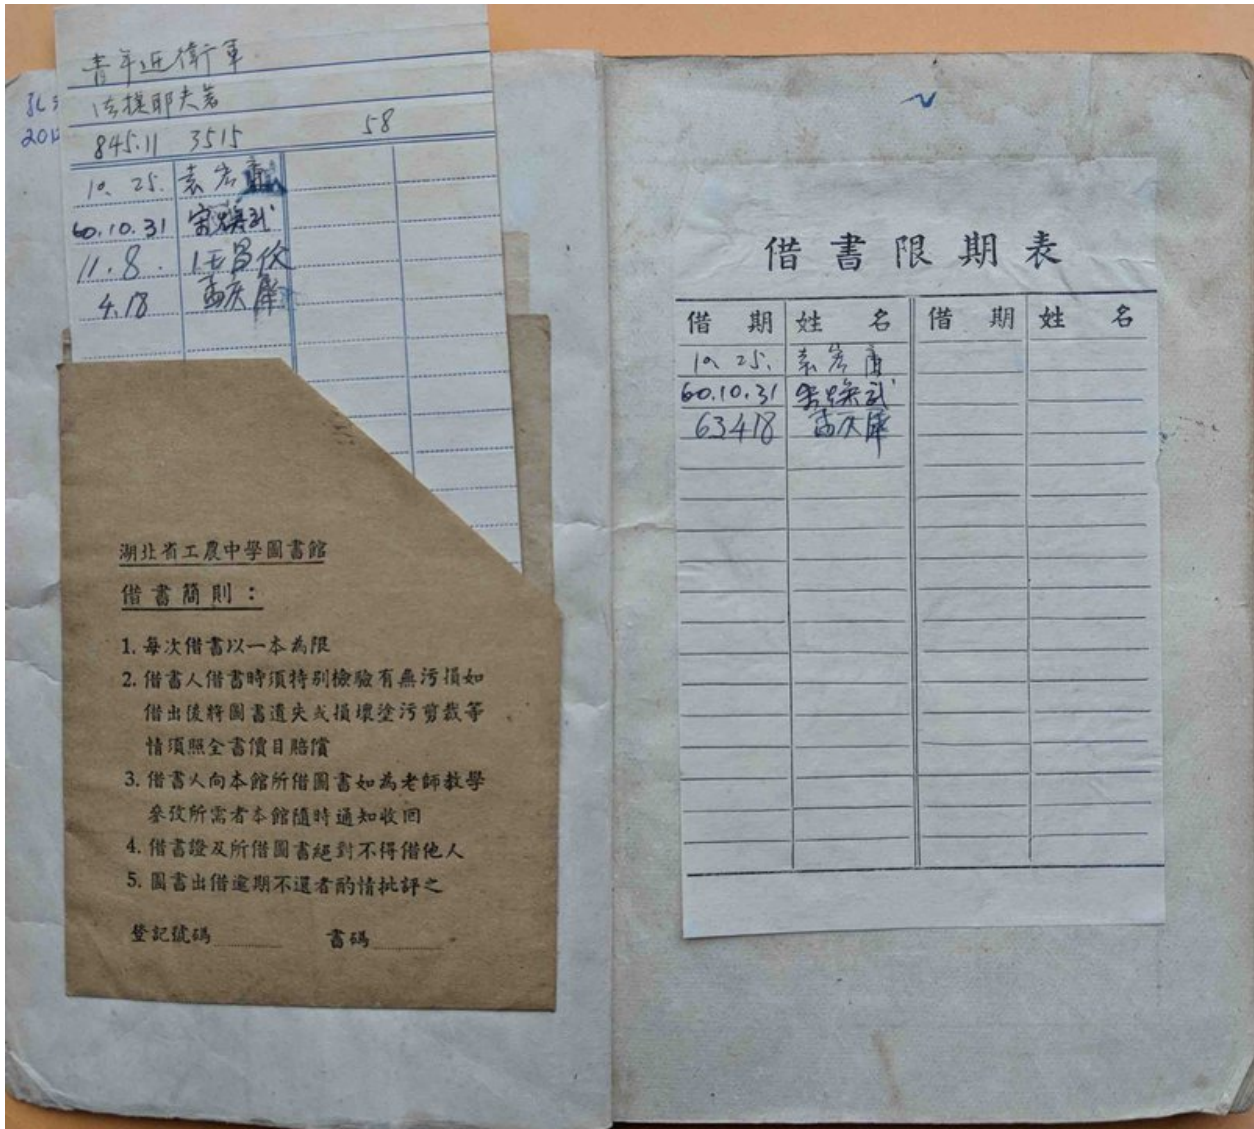 青年近衛軍
法捷耶夫著
845.11 3515 58
10. 25. 袁宏
60.10.31 宋煥武
11. 8. 汪昌佼
4.18 孟庆
湖北省工農中學圖書館
借書簡則：
1. 每次借書以一本為限
2. 借書人借書時須特別檢驗有無污損如
借出後將圖書遺失或損壞塗污剪裁等
情須照全書價目賠償
3. 借書人向本館所借圖書如為老師教學
參攷所需者本館隨時通知收回
4. 借書證及所借圖書絕對不得借他人
5. 圖書出借逾期不還者酌情批評之
登記號碼 書碼
借書限期表
借期 姓名 借期 姓名
10. 25. 袁宏
60.10.31 宋煥武
63418 孟庆